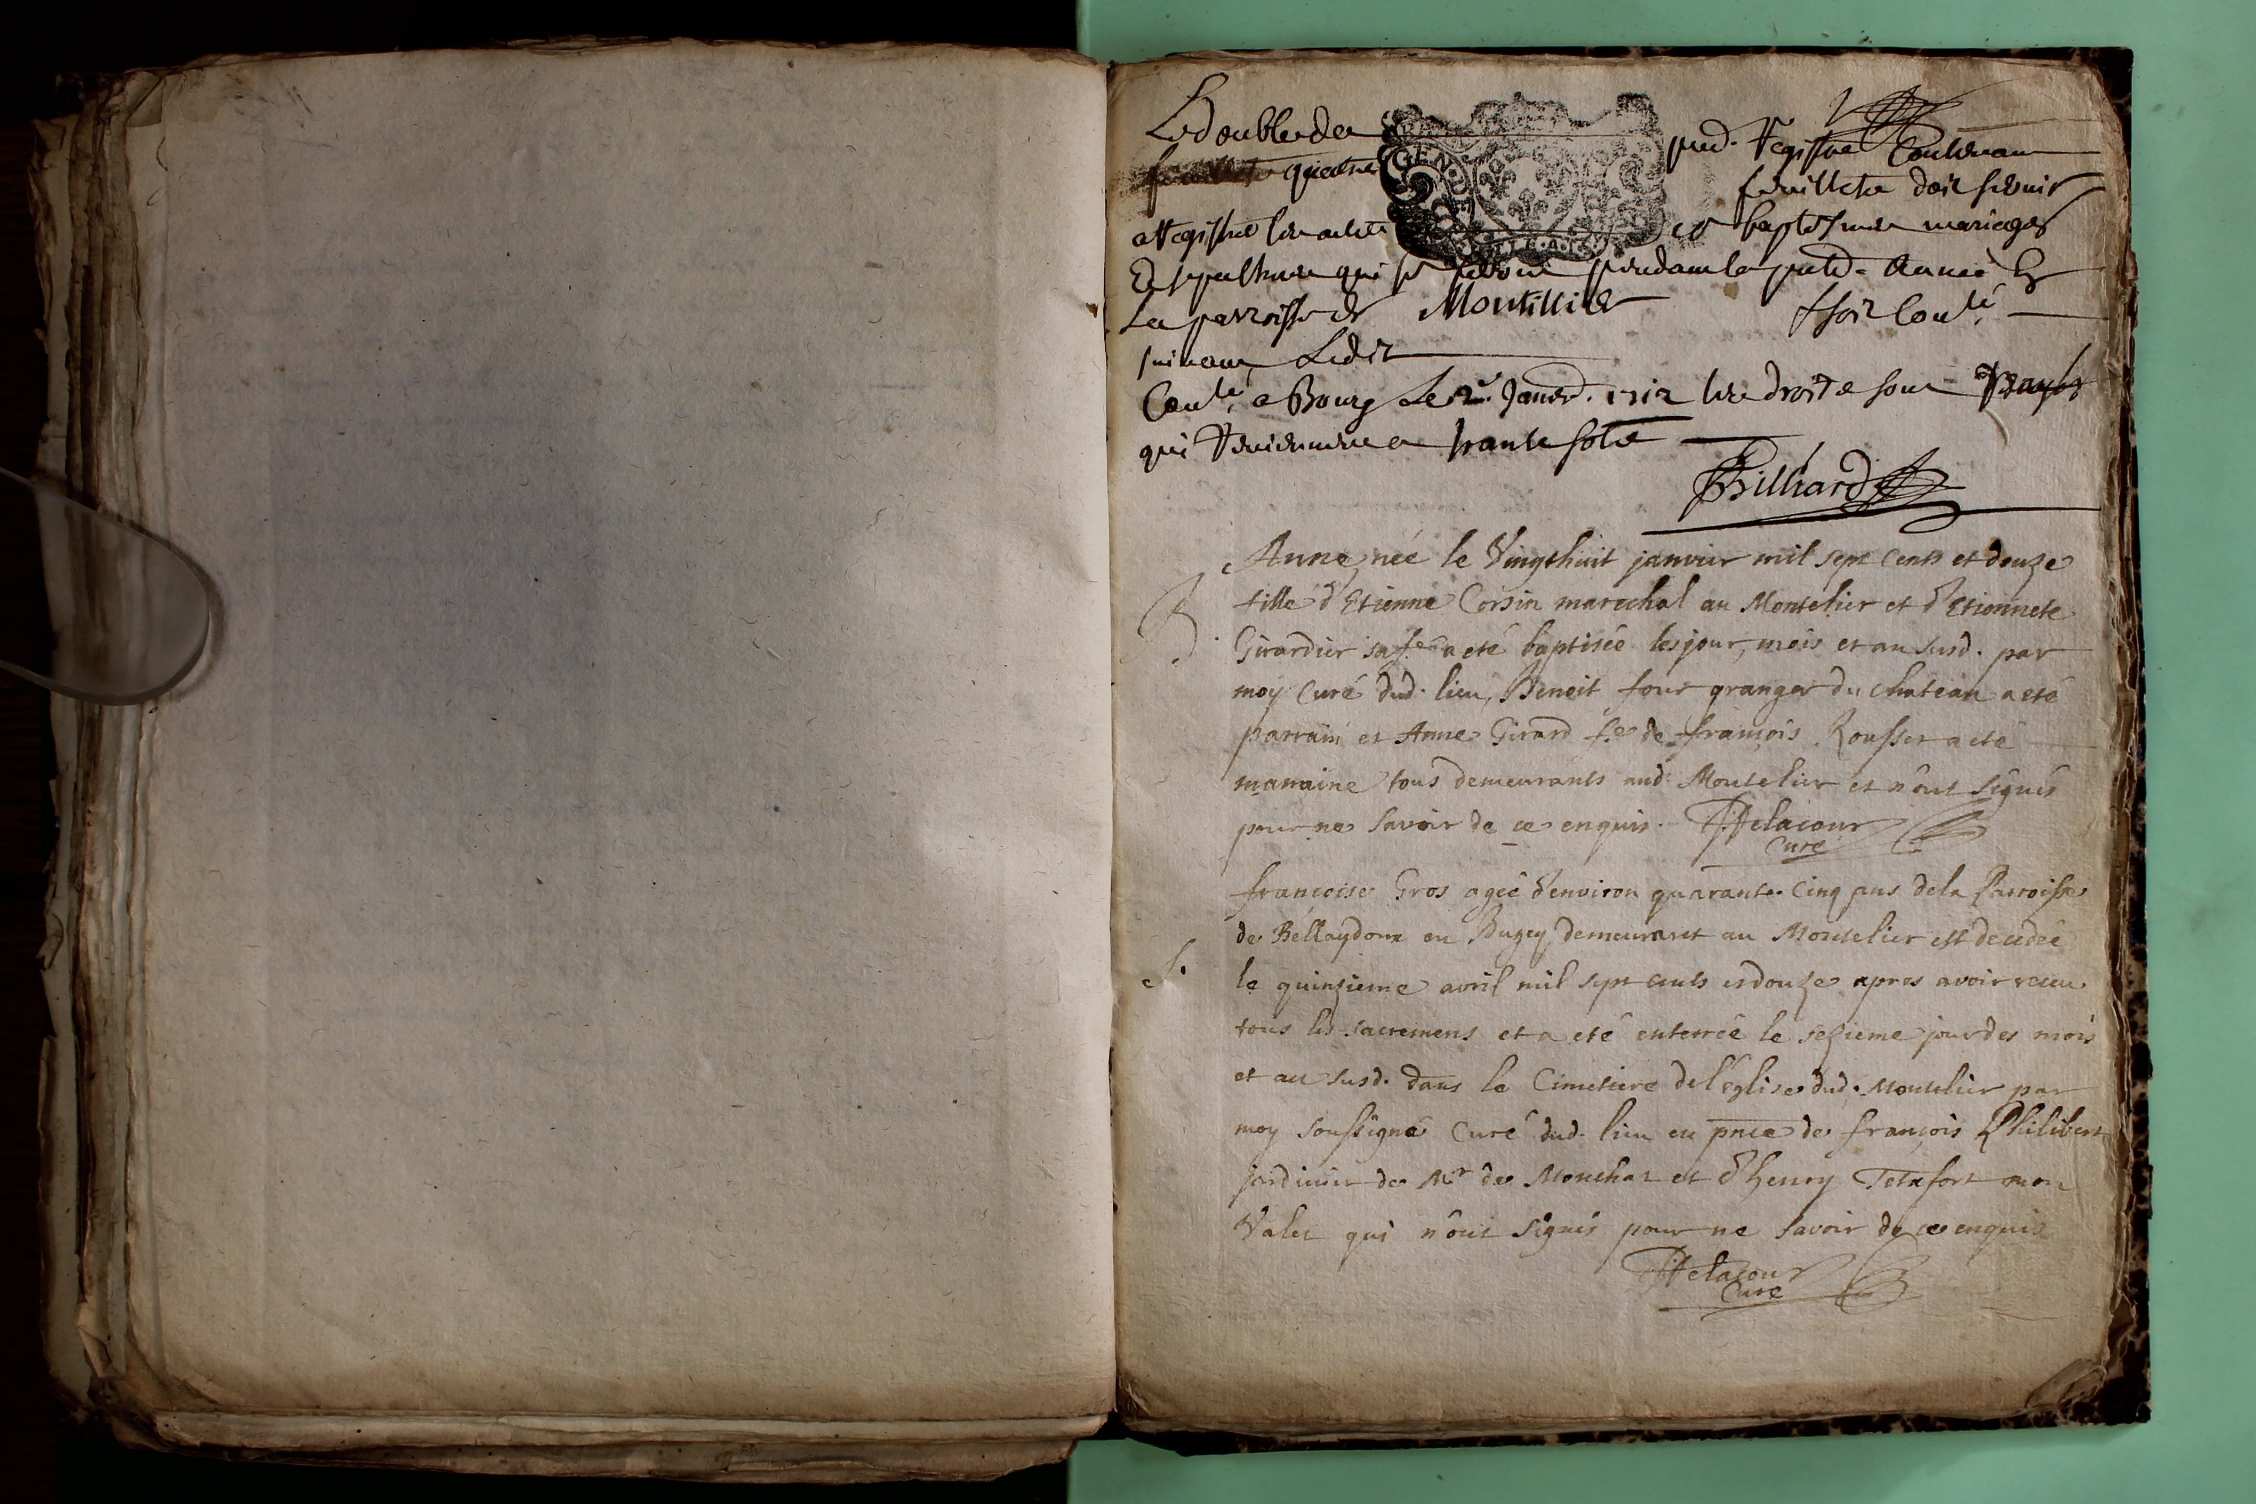 Le double du pnd. Registre Contenant
quatre feuillets doit servir
a Registrer les actes de baptesmes mariages
Et sepulture qui se feront pendant la pnte Année En
La parroisse de Montillier Et soit Conlé
suivant Ledit
Conlé a Bourg Le 2e Janvr. 1712 les droits sont
qui Reviennent a trante sols
Billiard
Anne née le Vingthuit janvier mil sept cents et douze
fille d'Etienne Corsin marechal au Montelier et d'Etionnete
B. Girardier sa fe. a eté baptisée les jour, mois et an susd. par
moy Curé dud. lieu, Benoit four granger du chateau a eté
parrain et Anne Girard fe. de françois Rousset a eté
marraine tous demeurants aud. Montelier et n'ont signés
pour ne savoir de ce enquis. Delacour
Curé
françoise Gros agée d'environ quarante cinq ans de la Parroisse
de Bellaydoux en Bugey demeurant au Montelier est decedée
S. le quinzieme avril mil sept cents et douze apres avoir receu
tous les sacremens et a eté enterrée le sezieme jour des mois
et an susd. dans le Cimetiere de l'église dud. Montelier par
moy soussigné Curé dud. lieu en pnce de françois Philibert
jardinier de Mr de Monchat et d'henry Tetafort mon
Valet qui n'ont signés pour ne savoir de ce enquis
Delacour
Curé